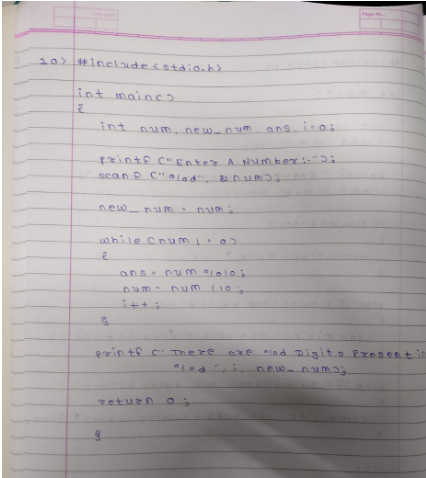 Page No.
10) #include<stdio.h>
int main()
{
int num, new_num, ans, i=0;
printf ("Enter A Number:-");
scanf ("%d", &num);
new_num = num;
while (num != 0)
{
ans = num %10;
num = num /10;
i++;
}
printf (" There are %d Digits Present in
%d ", i, new_num);
return 0;
}